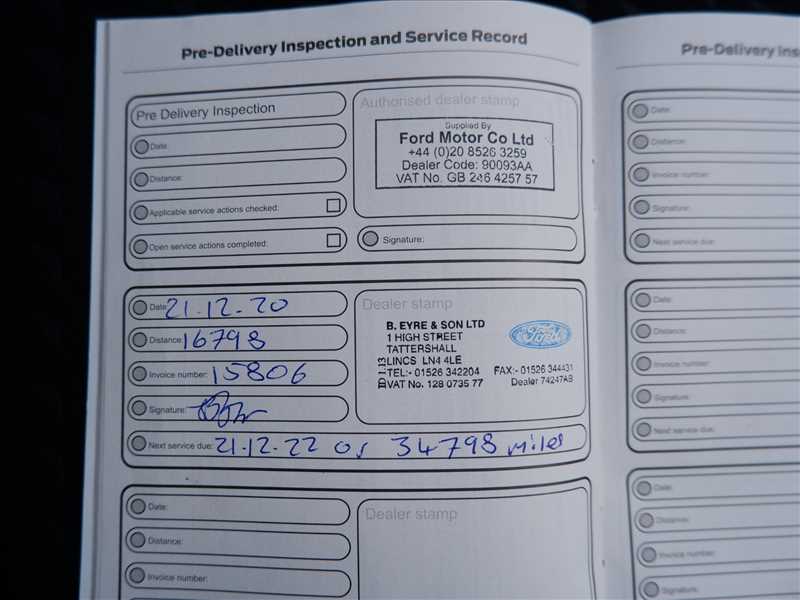 Pre-Delivery Inspection and Service Record
Pre Delivery Inspection
Date:
Distance:
Applicable service actions checked:
Open service actions completed:
Authorised dealer stamp
Supplied By
Ford Motor Co Ltd
+44 (0)20 8526 3259
Dealer Code: 90093AA
VAT No. GB 246 4257 57
Signature:
Date: 21.12.20
Distance: 16798
Invoice number: 15806
Signature:
Next service due: 21.12.22 or 34798 miles
Dealer stamp
B. EYRE & SON LTD
1 HIGH STREET
TATTERSHALL
LINCS LN4 4LE
TEL:- 01526 342204 FAX:- 01526 344431
VAT No. 128 0735 77 Dealer 74247AB
Ford
Date:
Distance:
Invoice number:
Dealer stamp
Pre-Delivery Ins
Date:
Distance:
Invoice number:
Signature:
Next service due:
Date:
Distance:
Invoice number:
Signature:
Next service due:
Date:
Distance:
Invoice number:
Signature: